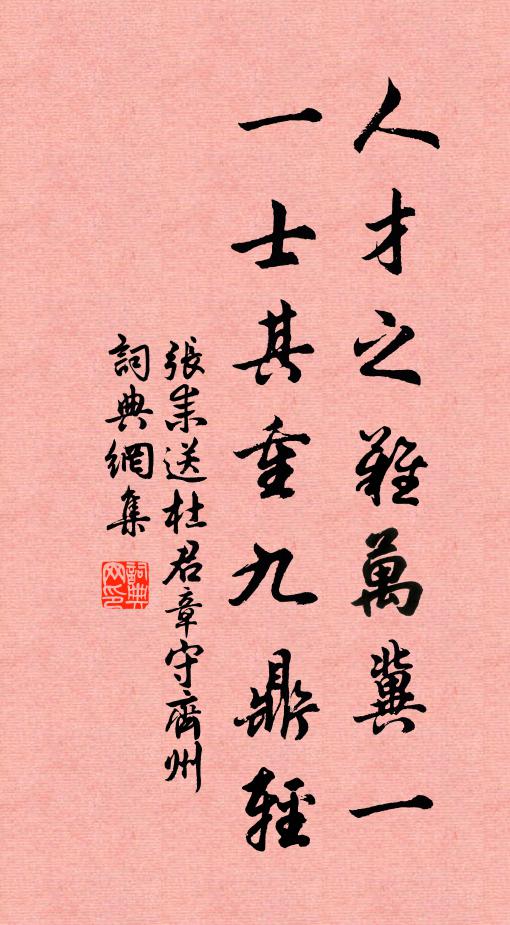 人才之難萬冀一
一士其重九鼎輕
張耒送杜君章守齊州
詞典網集
詞典网印